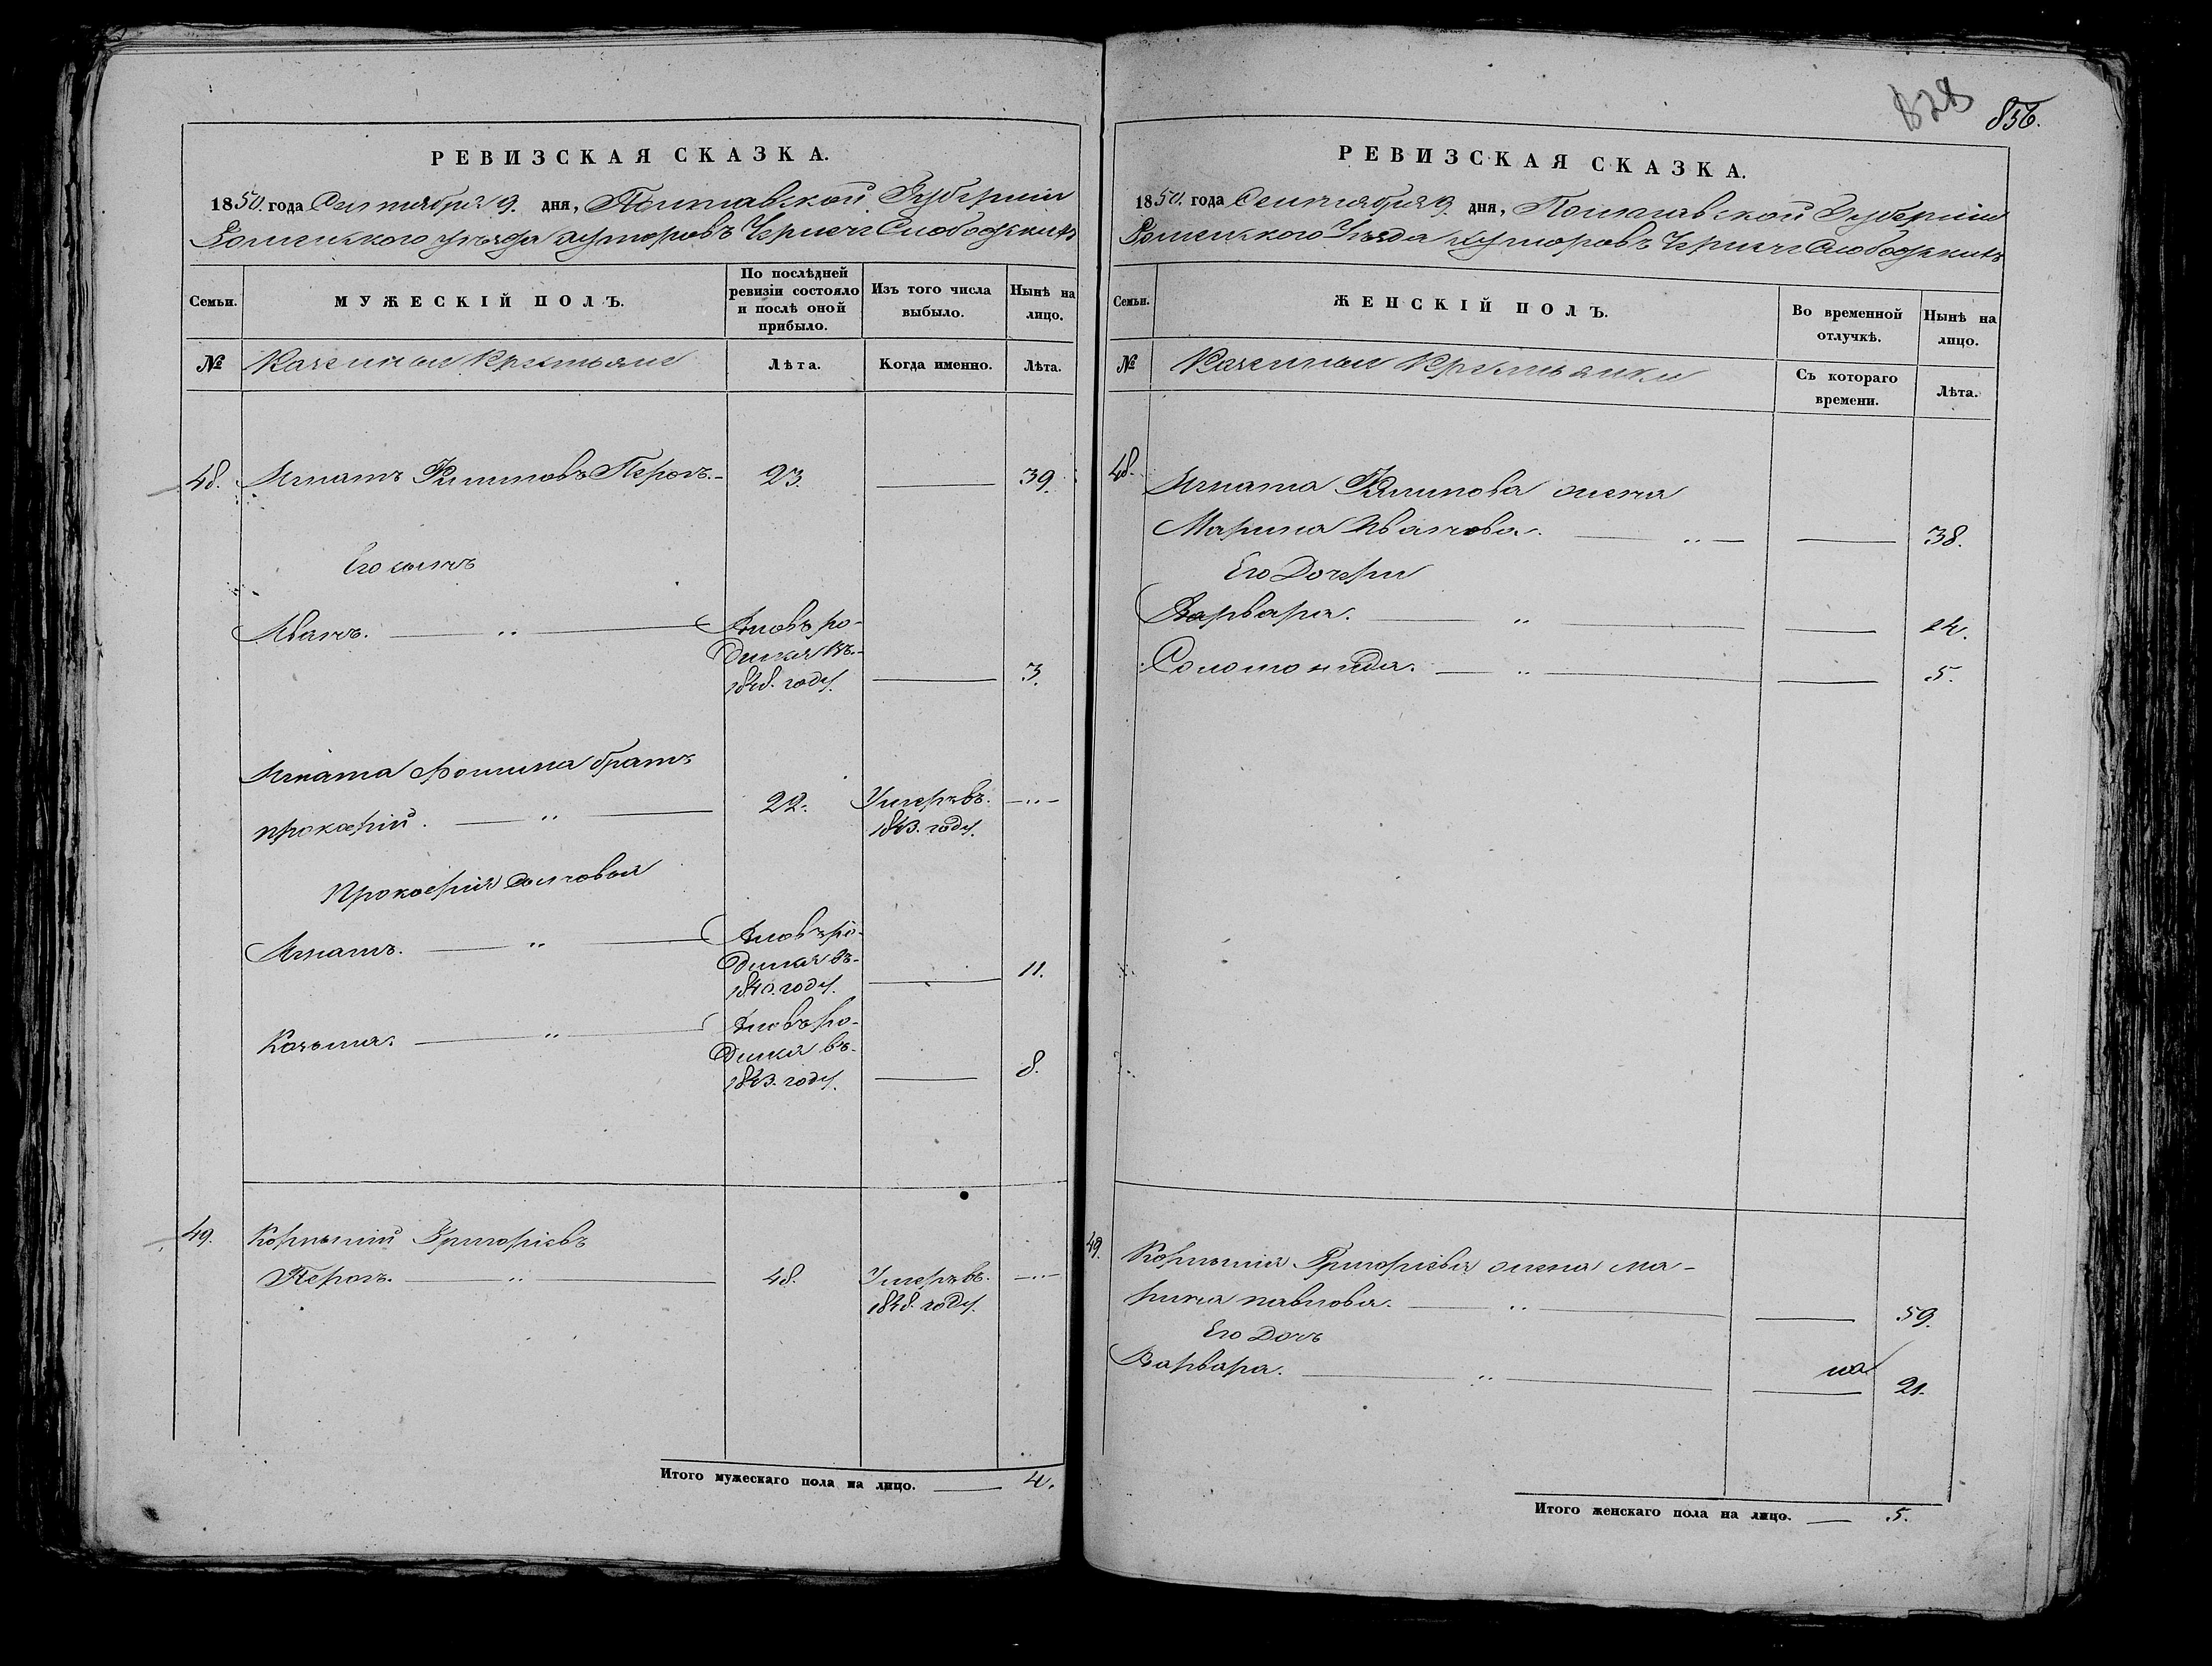 828 856.
РЕВИЗСКАЯ СКАЗКА.
1850. года Сентября 9. дня, Полтавской Губернии
Роменского уезда хуторовъ Чернече Слободскихъ
Семьи.
МУЖЕСКІЙ ПОЛЪ.
По послѣдней
ревизіи состояло
и послѣ оной
прибыло.
Изъ того числа
выбыло.
Нынѣ на
лицо.
№
Казенные Крестьяне
Лѣта.
Когда именно.
Лѣта.
48. Игнатъ Филиповъ Перогъ. 23. 39.
Его сынъ
Иванъ. Вновь ро-
дился въ
1848. году. 3.
Игната Фомина братъ
Прокофій. 22. Умеръ въ
1843. году.
Прокофія сыновья
Игнатъ. Вновь ро-
дился въ
1840. году. 11.
Козьма. Вновь ро-
дился въ
1843. году. 8.
49. Корнилій Григоріевъ
Перогъ. 48. Умеръ въ
1848. году.
Итого мужескаго пола на лицо. 4.
РЕВИЗСКАЯ СКАЗКА.
1850. года Сентября 9. дня, Полтавской Губерніи
Роменского Уезда хуторовъ Чернече Слободскихъ
Семьи.
ЖЕНСКІЙ ПОЛЪ.
Во временной
отлучкѣ.
Нынѣ на
лицо.
№
Казенные Крестьянки
Съ котораго
времени.
Лѣта.
48. Игната Филипова жена
Марина Иванова. 38.
Его Дочери
Варвара. 14.
Соломонида. 5.
49. Корнилія Григоріева жена Ма-
рина Павлова. 59.
Его Дочь
Варвара. 21.
Итого женскаго пола на лицо. 5.